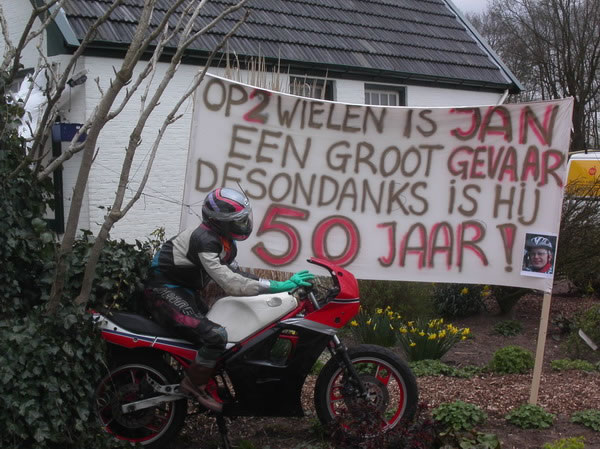 OP 2 WIELEN IS JAN
EEN GROOT GEVAAR
DESONDANKS IS HIJ
50 JAAR!